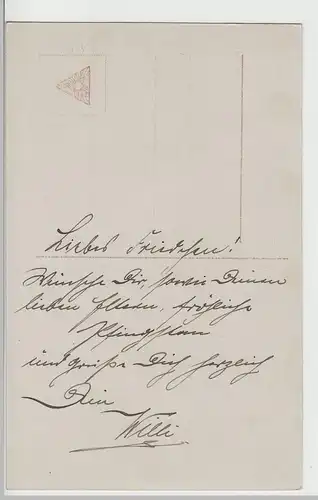 Liebes Friedchen!
Wünsche Dir, sowie Deinen
lieben Eltern, fröhliche
Pfingsten
und grüße Dich herzlich
Dein
Willi